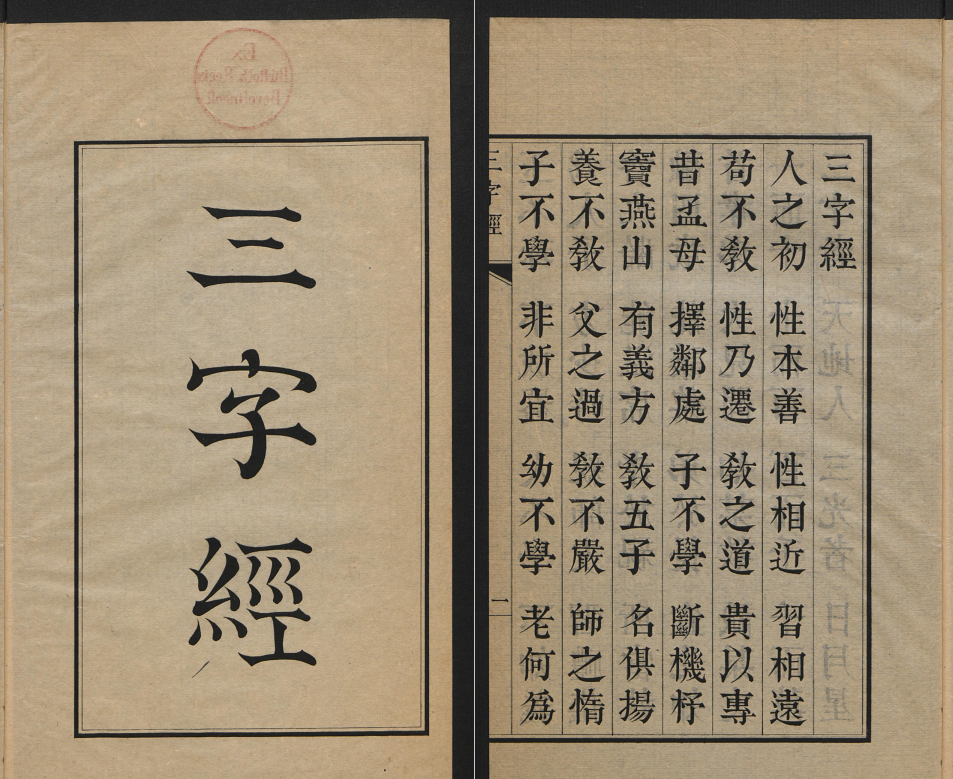 三字經
三字經
人之初 性本善 性相近 習相遠
苟不敎 性乃遷 敎之道 貴以專
昔孟母 擇鄰處 子不學 斷機杼
竇燕山 有義方 敎五子 名俱揚
養不敎 父之過 敎不嚴 師之惰
子不學 非所宜 幼不學 老何爲
三字經
一